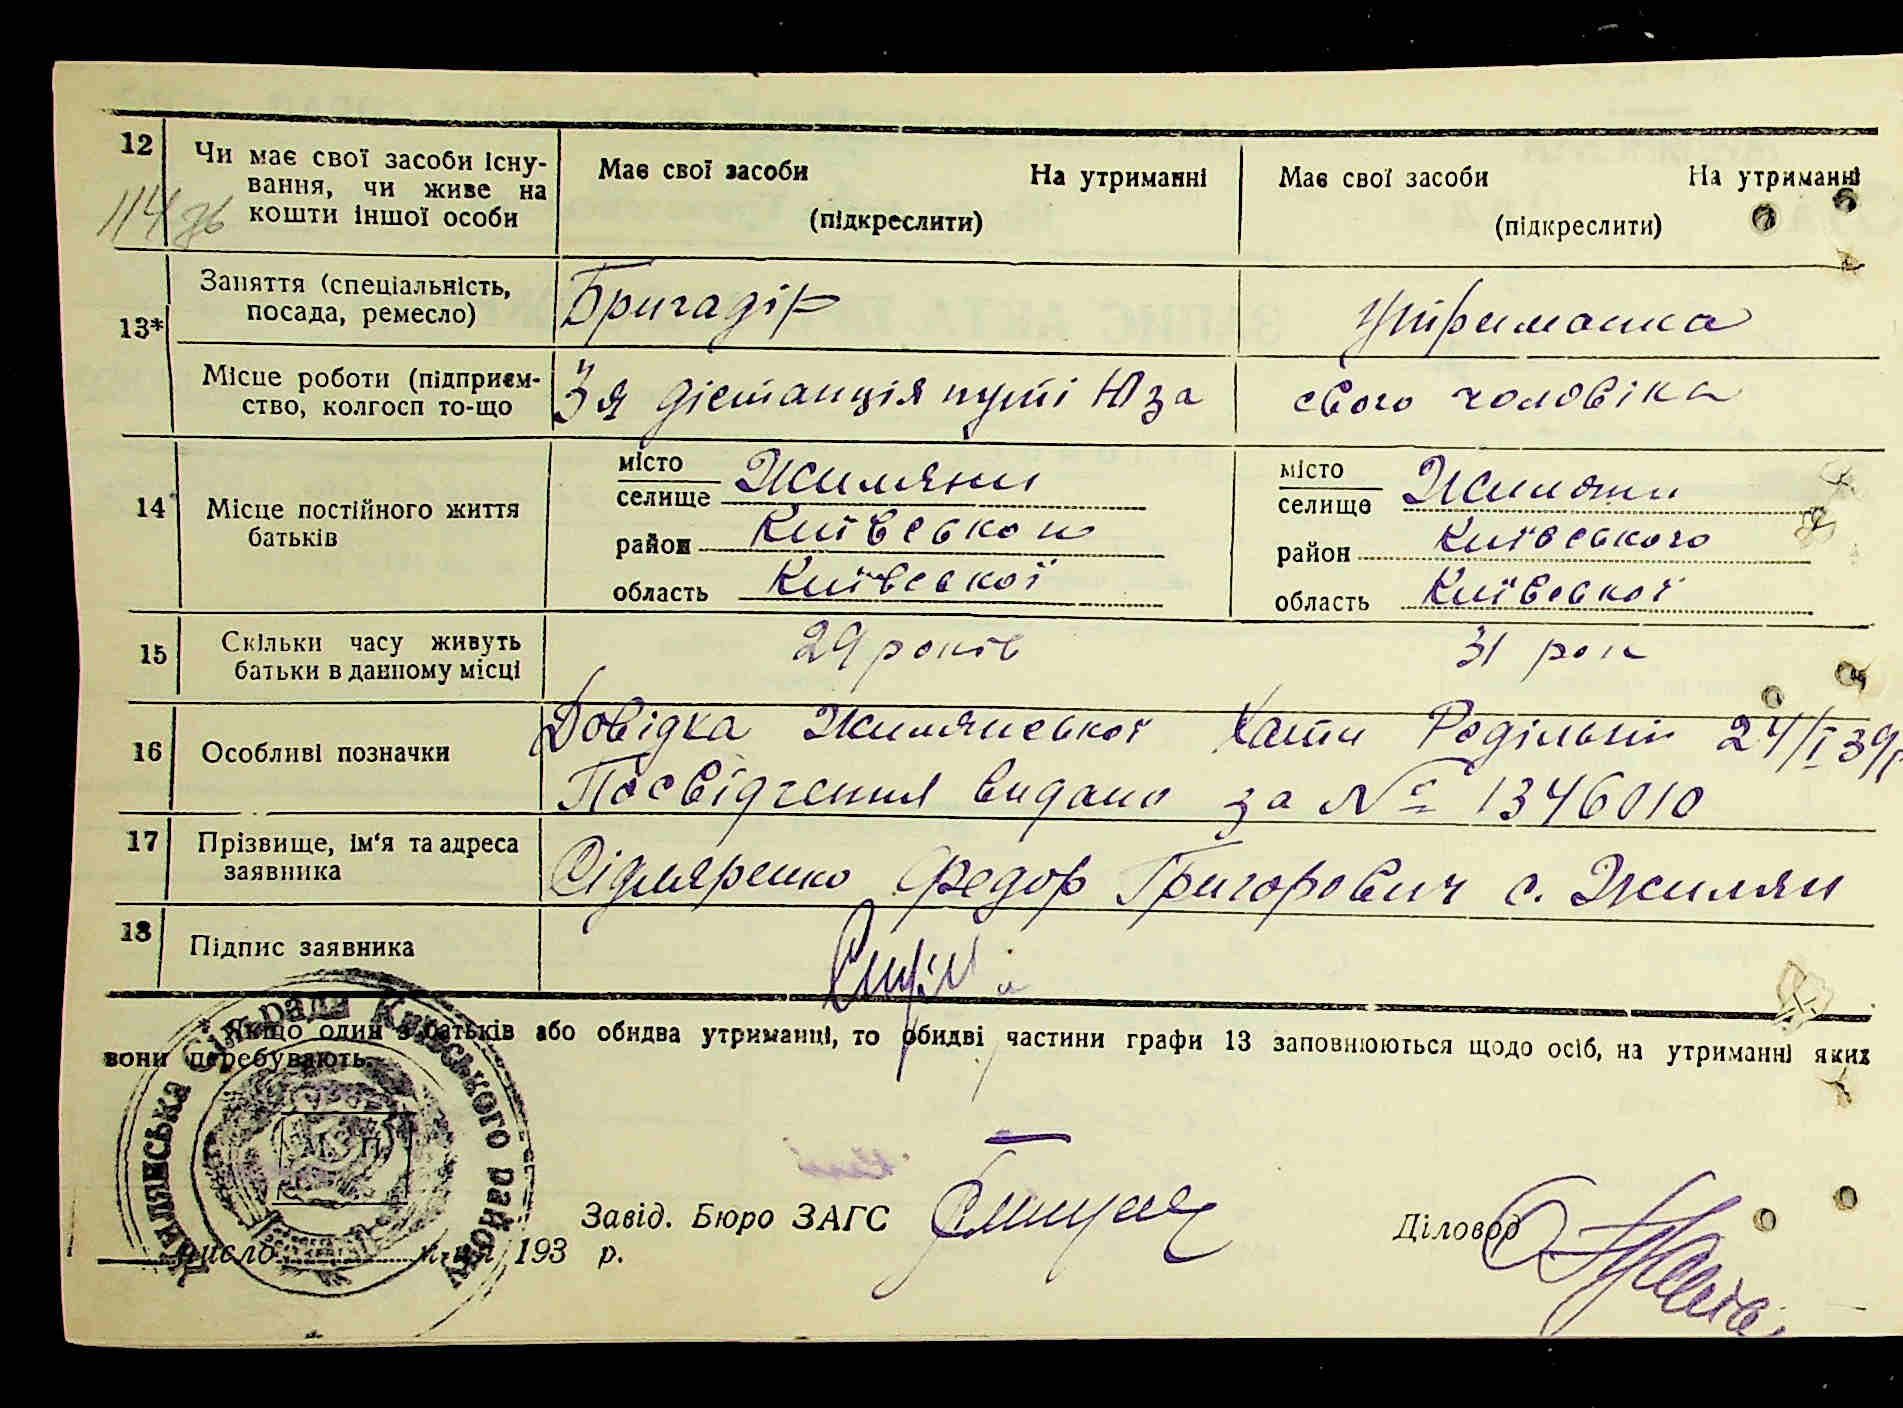 12 Чи має свої засоби існу-
вання, чи живе на
кошти іншої особи
Має свої засоби На утриманні
(підкреслити)
Має свої засоби На утриманні
(підкреслити)
114
13* Заняття (спеціальність,
посада, ремесло)
Бригадір
утриманка
Місце роботи (підприєм-
ство, колгосп то-що
3 я дістанція путі Юза
свого чоловіка
14 Місце постійного життя
батьків
місто
селище Жиляни
район Київського
область Київської
місто
селище Жиляни
район Київського
область Київської
15 Скільки часу живуть
батьки в данному місці
29 років
31 рок
16 Особливі позначки
Довідка Жилянської Хати Родільній 24/I 39р
Посвідчення видано за № 1346010
17 Прізвище, ім'я та адреса
заявника
Сідляренко Федор Григорович с. Жиляни
18 Підпис заявника
* Якщо один з батьків або обидва утриманці, то обидві частини графи 13 заповнюються щодо осіб, на утриманні яких
вони перебувають.
Жилянська Сільрада Київського району
М. П.
Завід. Бюро ЗАГС
Діловод
число м-ця 193 р.